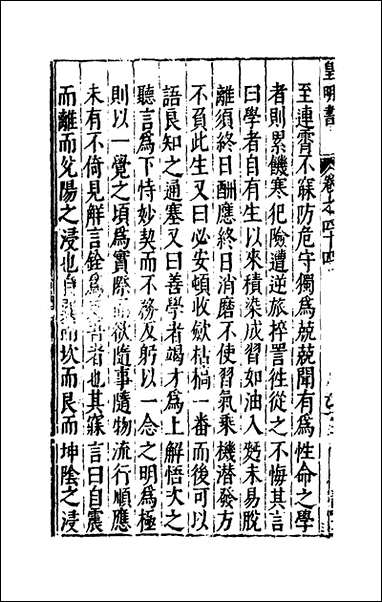 皇明書 卷之四十四
至連霄不寐防危守獨為兢兢聞有為性命之學
者則累饑寒犯險遭逆旅捽詈徃從之不悔其言
曰學者自有生以來積染成習如油入麫未易脫
離須終日酬應終日消磨不使習氣乘機潜發方
不負此生又曰必安頓收歛枯槁一番而後可以
語良知之通塞又曰善學者竭才為上解悟次之
聽言為下恃妙契而不務反躬以一念之明為極
則以一覺之頃為實際而欲隨事隨物流行順應
未有不倚見解言銓為者也其寐言曰自震
而離而兌陽之浸也自巽而坎而艮而坤陰之浸